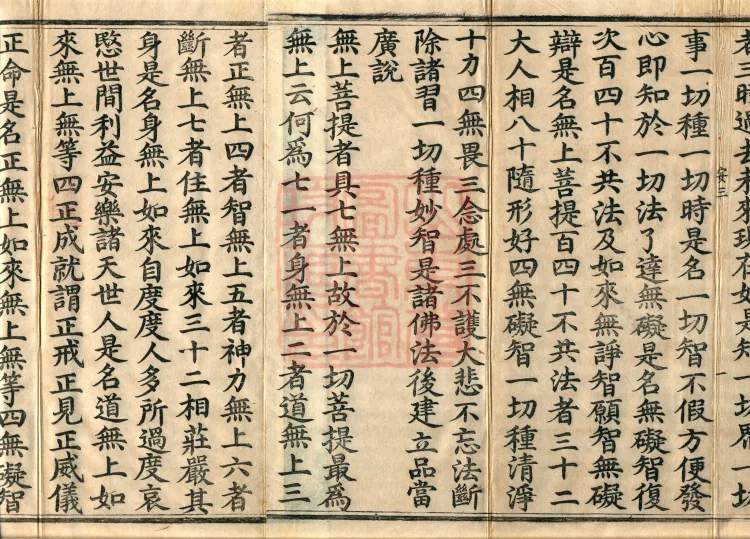 者三時過去未來現在如是知一切界一切
事一切種一切時是名一切智不假方便發
心即知於一切法了達無礙是名無礙智復
次百四十不共法及如來無諍智願智無礙
辯是名無上菩提百四十不共法者三十二
大人相八十隨形好四無礙智一切種清淨
十力四無畏三念處三不護大悲不忘法斷
除諸習一切種妙智是諸佛法後建立品當
廣說
無上菩提者具七無上故於一切菩提最爲
無上云何爲七一者身無上二者道無上三
者正無上四者智無上五者神力無上六者
斷無上七者住無上如來三十二相莊嚴其
身是名身無上如來自度度人多所過度哀
愍世間利益安樂諸天世人是名道無上如
來無上無等四正成就謂正戒正見正威儀
正命是名正無上如來無上無等四無礙智